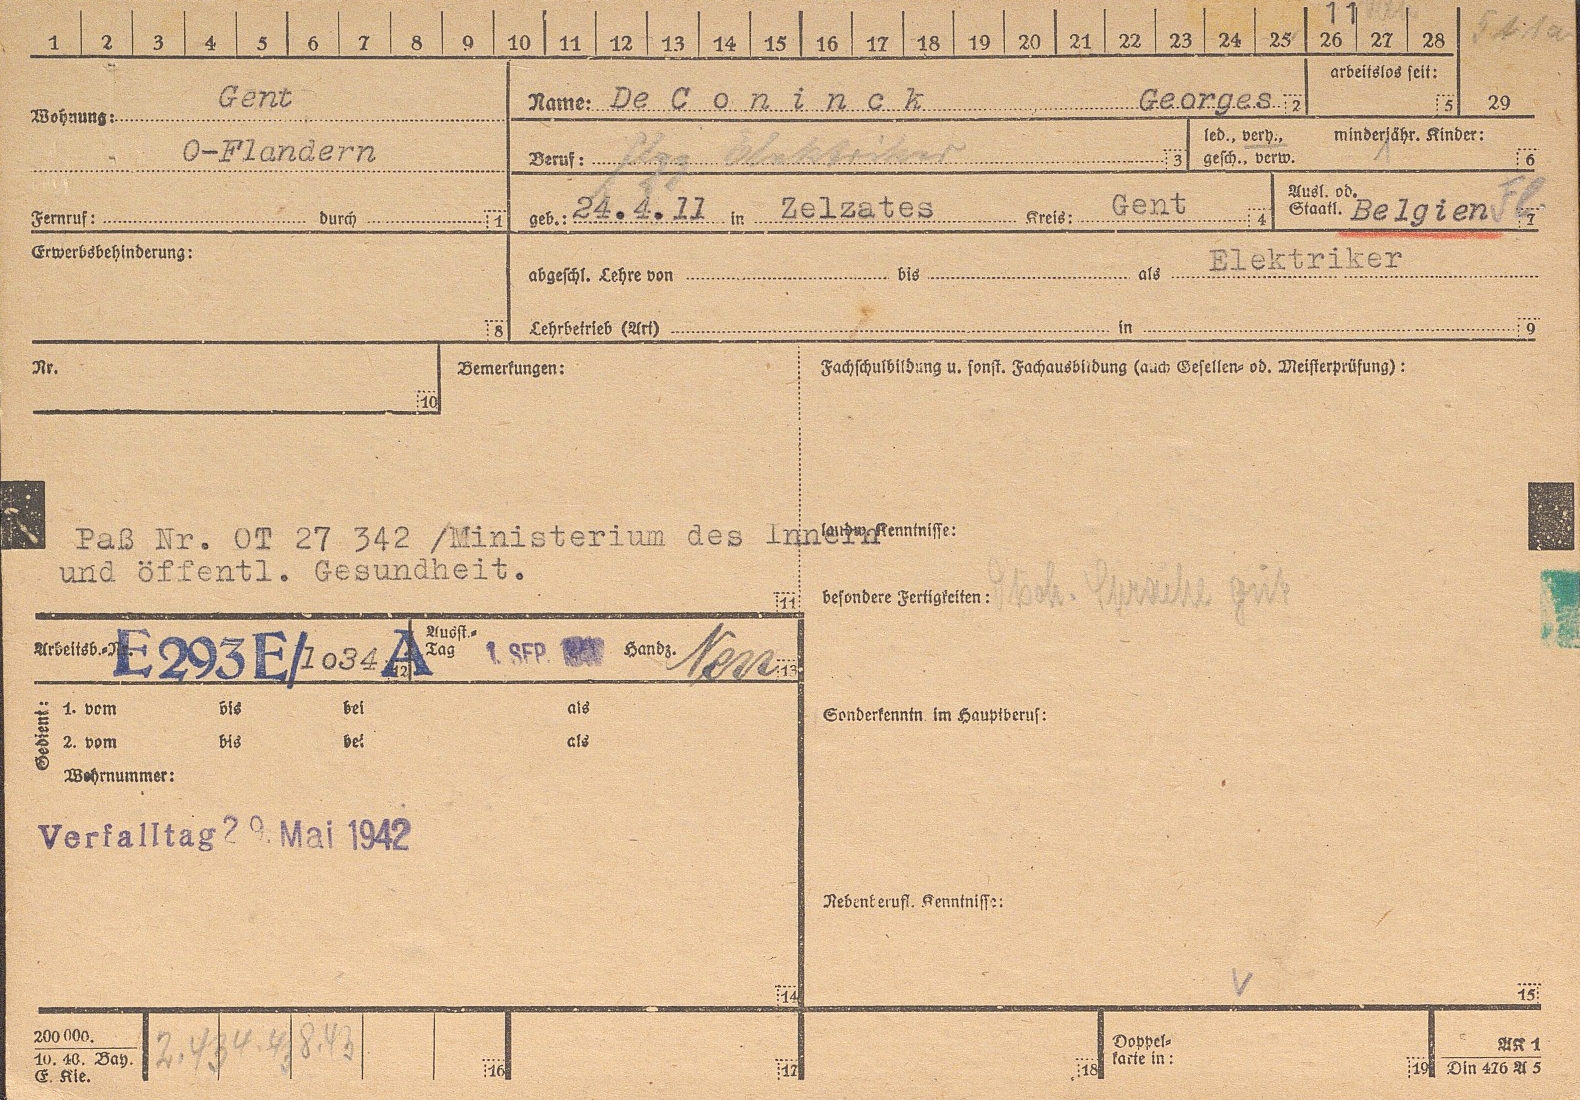 11
1 2 3 4 5 6 7 8 9 10 11 12 13 14 15 16 17 18 19 20 21 22 23 24 25 26 27 28
Wohnung: Gent
O-Flandern
Fernruf: durch 1
Name: De C o n i n c k Georges 2
arbeitslos seit: 5
29
Beruf: Elektriker 3
led., verh., minderjähr. Kinder:
gesch., verw. 1 6
geb.: 24.4.11 in Zelzates Kreis: Gent 4
Ausl. od.
Staatl. Belgien Fl. 7
Erwerbsbehinderung:
8
abgeschl. Lehre von bis als Elektriker
Lehrbetrieb (Art) in 9
Nr.
10
Bemerkungen:
Fachschulbildung u. sonst. Fachausbildung (auch Gesellen- od. Meisterprüfung):
Paß Nr. OT 27 342 /Ministerium des Innern
und öffentl. Gesundheit.
11
landw. Kenntnisse:
besondere Fertigkeiten: Dtsch. Sprache gut
Arbeitsb.-Nr. E 293 E/1034 A 12
Ausst.-
Tag 1. SEP. Handz. 13
Gedient:
1. vom bis bei als
2. vom bis bei als
Wehrnummer:
Sonderkenntn. im Hauptberuf:
Verfalltag 29. Mai 1942
Nebenberufl. Kenntnisse:
14
V
15
200 000.
10. 40. Bay.
E. Kie.
2.43 4.43 8.43
16
17
18
Doppel-
karte in:
19
AK 1
Din 476 A 5